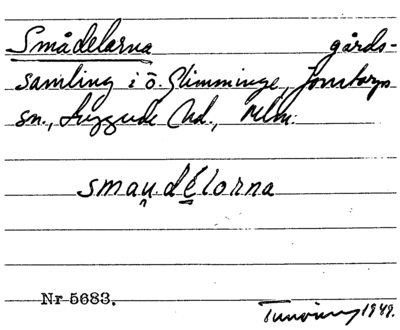 Smådelarna gårds-
samling i ö. Slimminge, Jonstorps
sn., Luggude hd., Mlm.
smau̯délorna
Nr 5683.
1949.